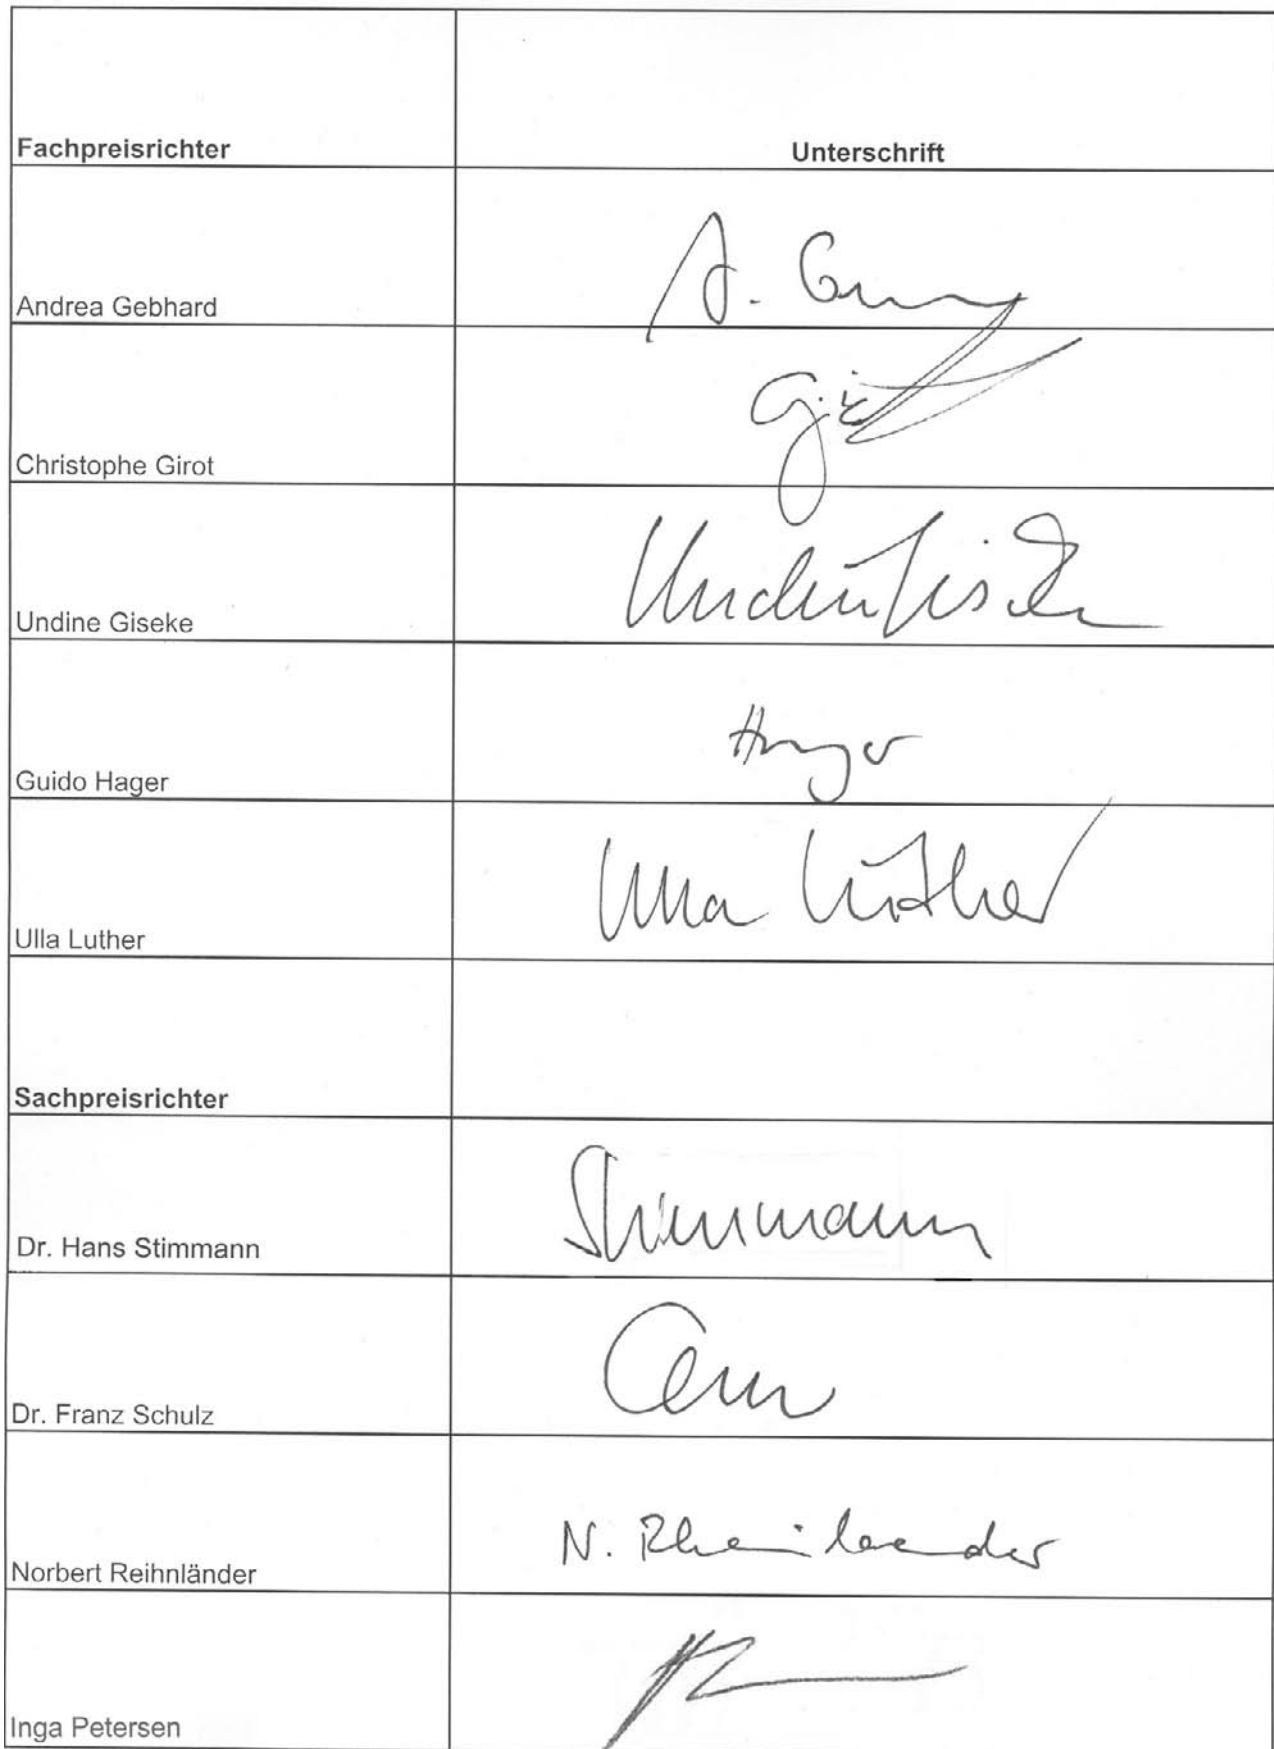 Fachpreisrichter Unterschrift
Andrea Gebhard A.
Christophe Girot
Undine Giseke
Guido Hager Hager
Ulla Luther Ulla Luther
Sachpreisrichter
Dr. Hans Stimmann Stimmann
Dr. Franz Schulz
Norbert Reihnländer N. Rheinlaender
Inga Petersen